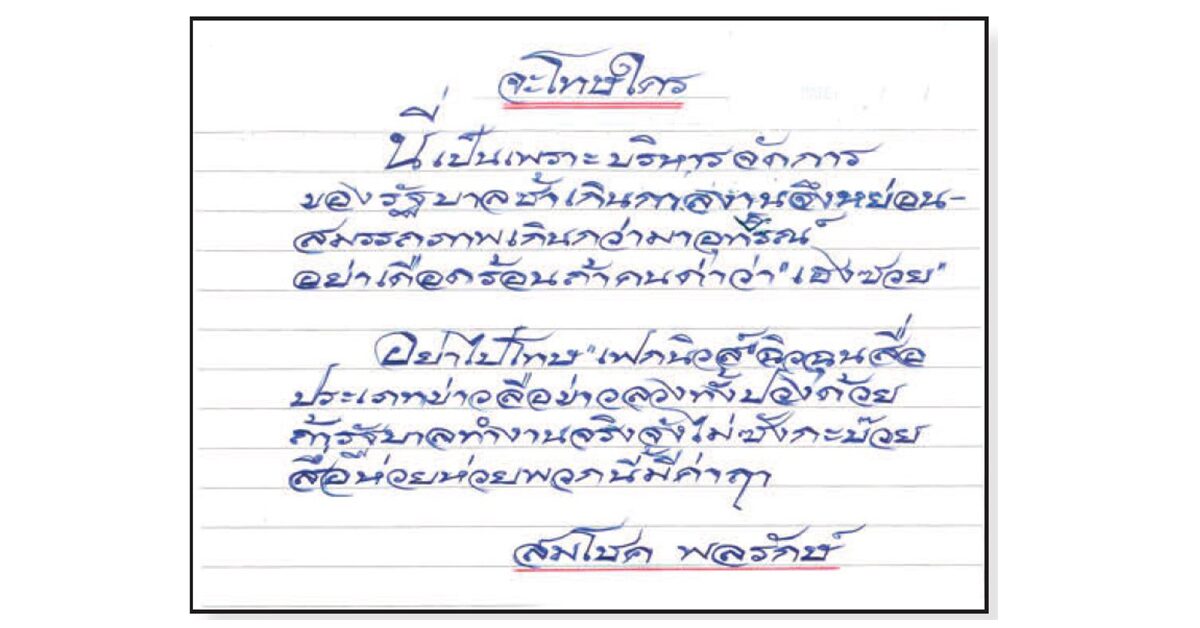 จะโทษใคร
นี่เป็นเพราะบริหารจัดการ
ของรัฐบาลช้าเกินกาลงานจึงหย่อน-
สมรรถภาพเกินกว่ามาอุทธรณ์
อย่าเดือดร้อนถ้าคนด่าว่า"เฮงซวย"
อย่าไปโทษ"เฟกนิวส์"ฉิวฉุนสื่อ
ประเภทข่าวลือข่าวลวงทั้งปวงด้วย
ถ้ารัฐบาลทำงานจริงจังไม่ซังกะบ๊วย
สื่อห่วยห่วยพวกนี้มีค่าฤา
สมโชค พลรักษ์